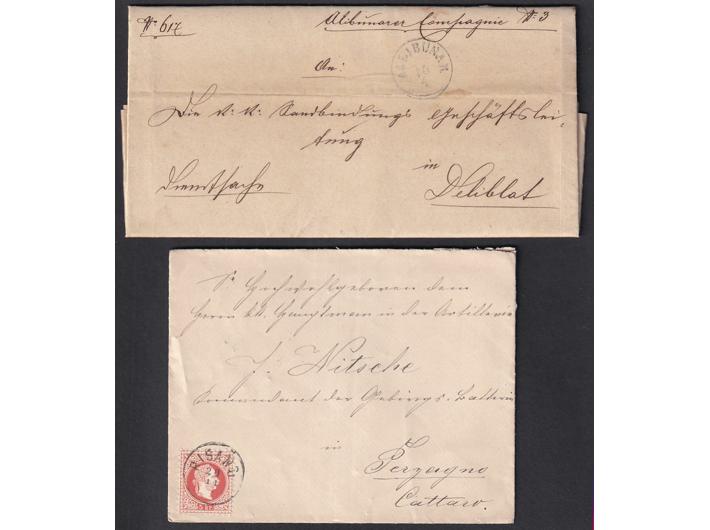 Nr. 617 Alibunarer Compagnie Nr. 3
ALIBUNAR
An:
Die k. k. Sandbindungs Geschäftslei-
tung
in
Dienstsache Deliblat
Sr. Hochwohlgeboren dem
Herrn kk. Hauptmann in der Artillerie
J. Nitsche
Commandant der Gebirgs-Batterie
in
Perzagno
Cattaro.
RISANO
5 KR